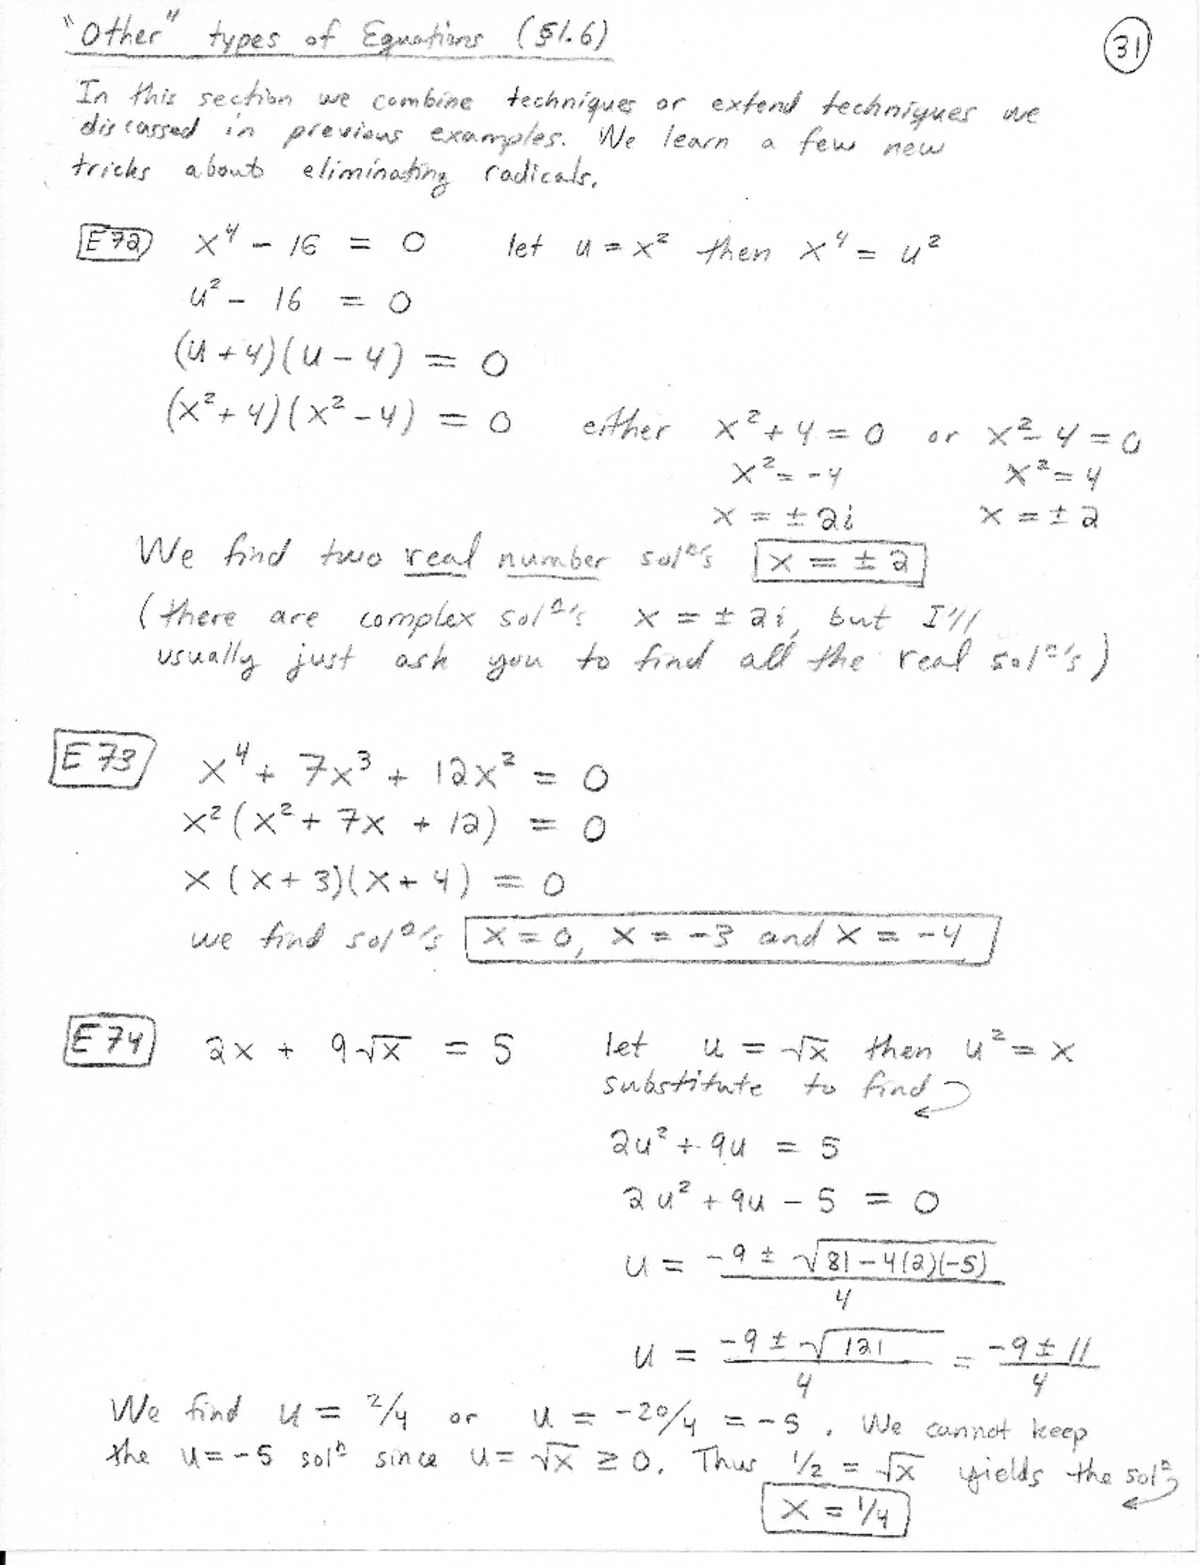 "Other" types of Equations (§1.6)
31
In this section we combine techniques or extend techniques we
discussed in previous examples. We learn a few new
tricks about eliminating radicals.
E72 x⁴ - 16 = 0 let u = x² then x⁴ = u²
u² - 16 = 0
(u + 4)(u - 4) = 0
(x² + 4)(x² - 4) = 0 either x² + 4 = 0 or x² - 4 = 0
x² = -4 x² = 4
x = ± 2i x = ± 2
We find two real number solⁿ's x = ± 2
(there are complex solⁿ's x = ± 2i, but I'll
usually just ask you to find all the real solⁿ's)
E73 x⁴ + 7x³ + 12x² = 0
x²(x² + 7x + 12) = 0
x (x + 3)(x + 4) = 0
we find solⁿ's x = 0, x = -3 and x = -4
E74 2x + 9√x = 5 let u = √x then u² = x
substitute to find
2u² + 9u = 5
2u² + 9u - 5 = 0
u = (-9 ± √(81 - 4(2)(-5)))/4
u = (-9 ± √121)/4 = (-9 ± 11)/4
We find u = 2/4 or u = -20/4 = -5. We cannot keep
the u = -5 solⁿ since u = √x ≥ 0. Thus 1/2 = √x yields the solⁿ
x = 1/4